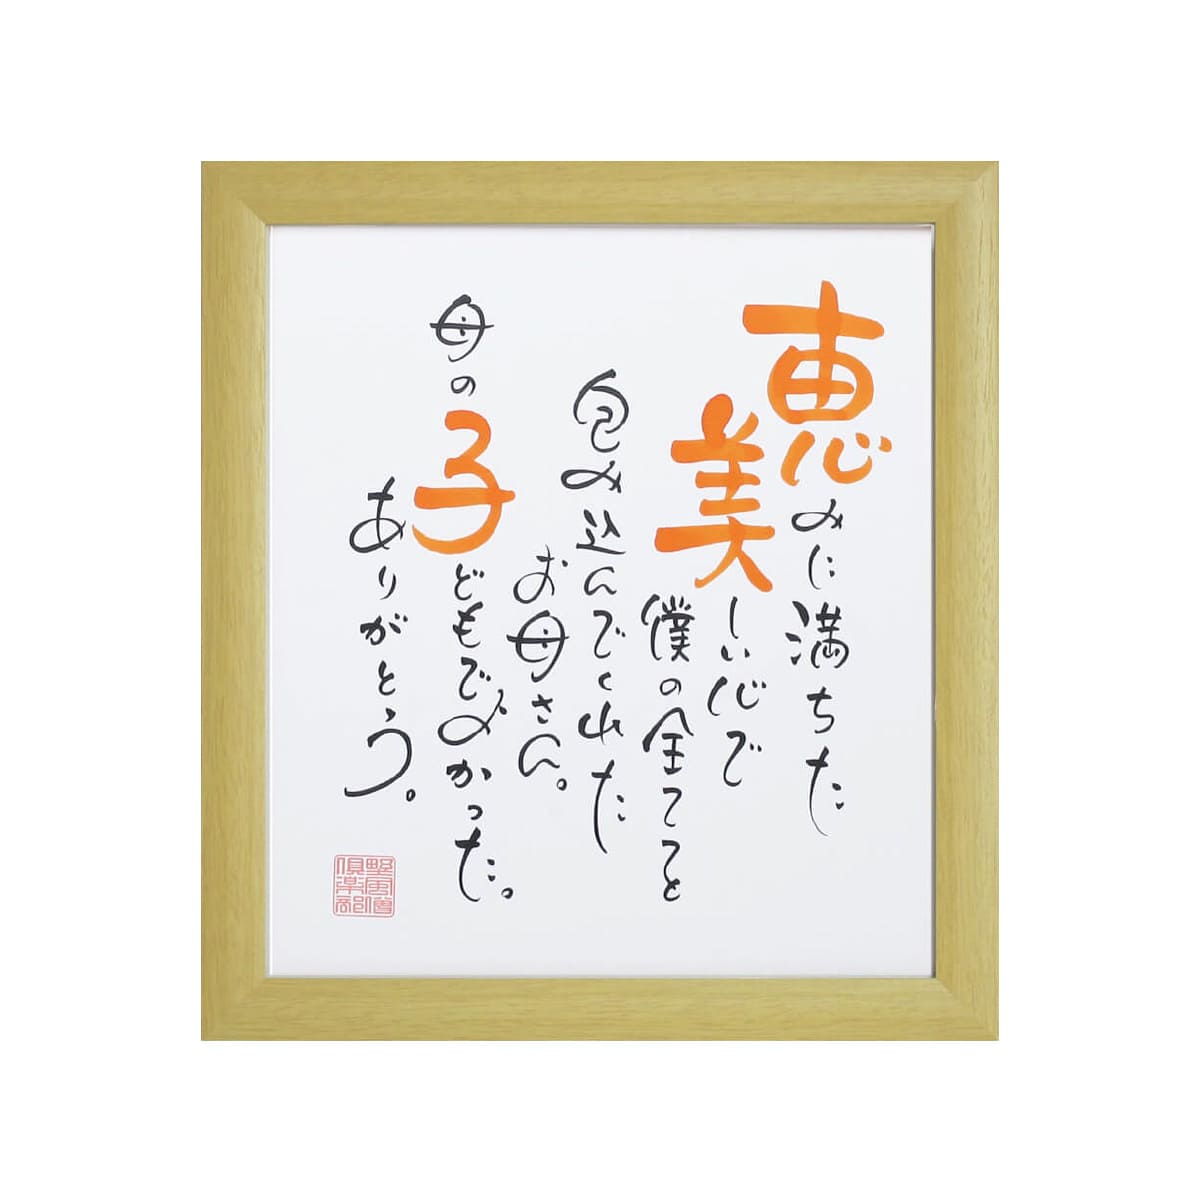 恵みに満ちた
美しい心で
僕の全てを
包み込んでくれた
お母さん。
母の子どもでよかった。
ありがとう。
野風僧
倶楽部